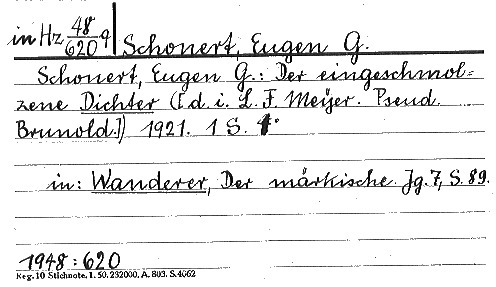 in Hz 48/620 q Schonert, Eugen G.
Schonert, Eugen G.: Der eingeschmol=
zene Dichter ([d. i. L. F. Meyer. Pseud.
Brunold.]) 1921. 1 S. 4°
in: Wanderer, Der märkische. Jg. 7, S. 89.
1948 : 620
Keg. 10 Stichnote. 1. 50. 232000. A. 803. S. 4662